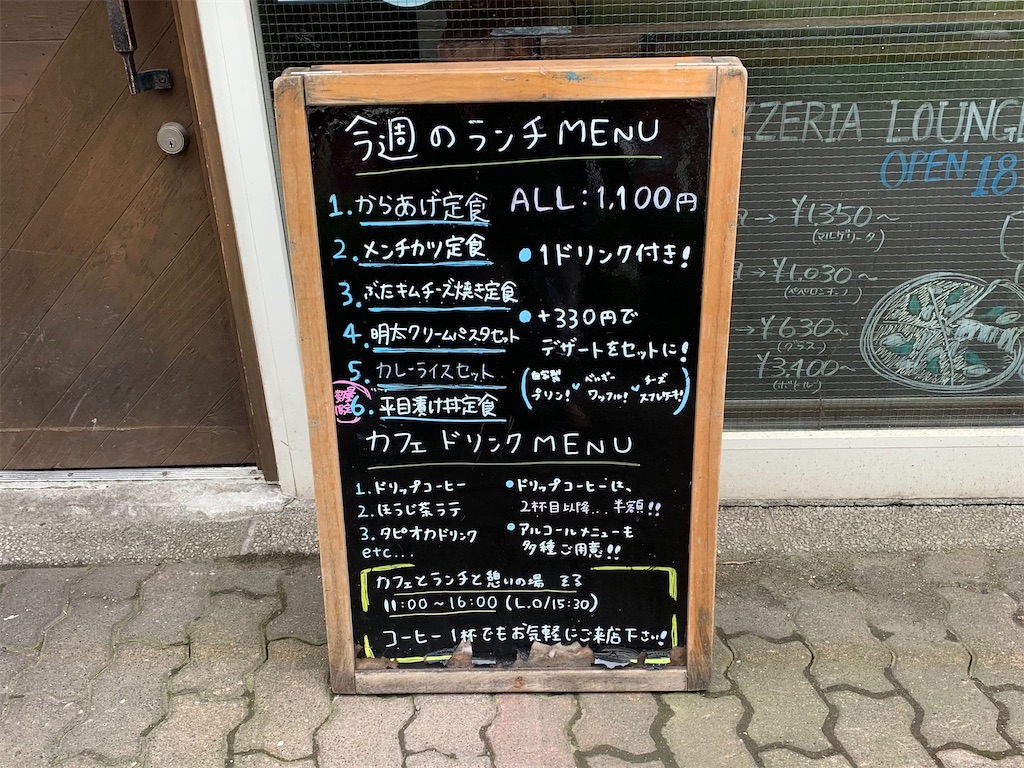 今週のランチMENU
1.からあげ定食
2.メンチカツ定食
3.ぶたキムチーズ焼き定食
4.明太クリームパスタセット
5.カレーライスセット
数量限定
6.平目漬け丼定食
ALL:1,100円
●1ドリンク付き!
●+330円で
デザートをセットに!
(自家製プリン! ベルギーワッフル! チーズスフレケーキ!)
カフェドリンクMENU
1.ドリップコーヒー
2.ほうじ茶ラテ
3.タピオカドリンク
etc...
●ドリップコーヒーは、
2杯目以降...半額!!
●アルコールメニューも
多種ご用意!!
カフェとランチと憩いの場 ミュ
11:00~16:00(L.O/15:30)
コーヒー1杯でもお気軽にご来店下さい!
ZZERIA LOUNGE
OPEN 18
→ ¥1350~
(マルゲリータ)
→ ¥1,030~
(ペペロンチーノ)
→ ¥630~
(グラス)
¥3,400~
(ボトル)